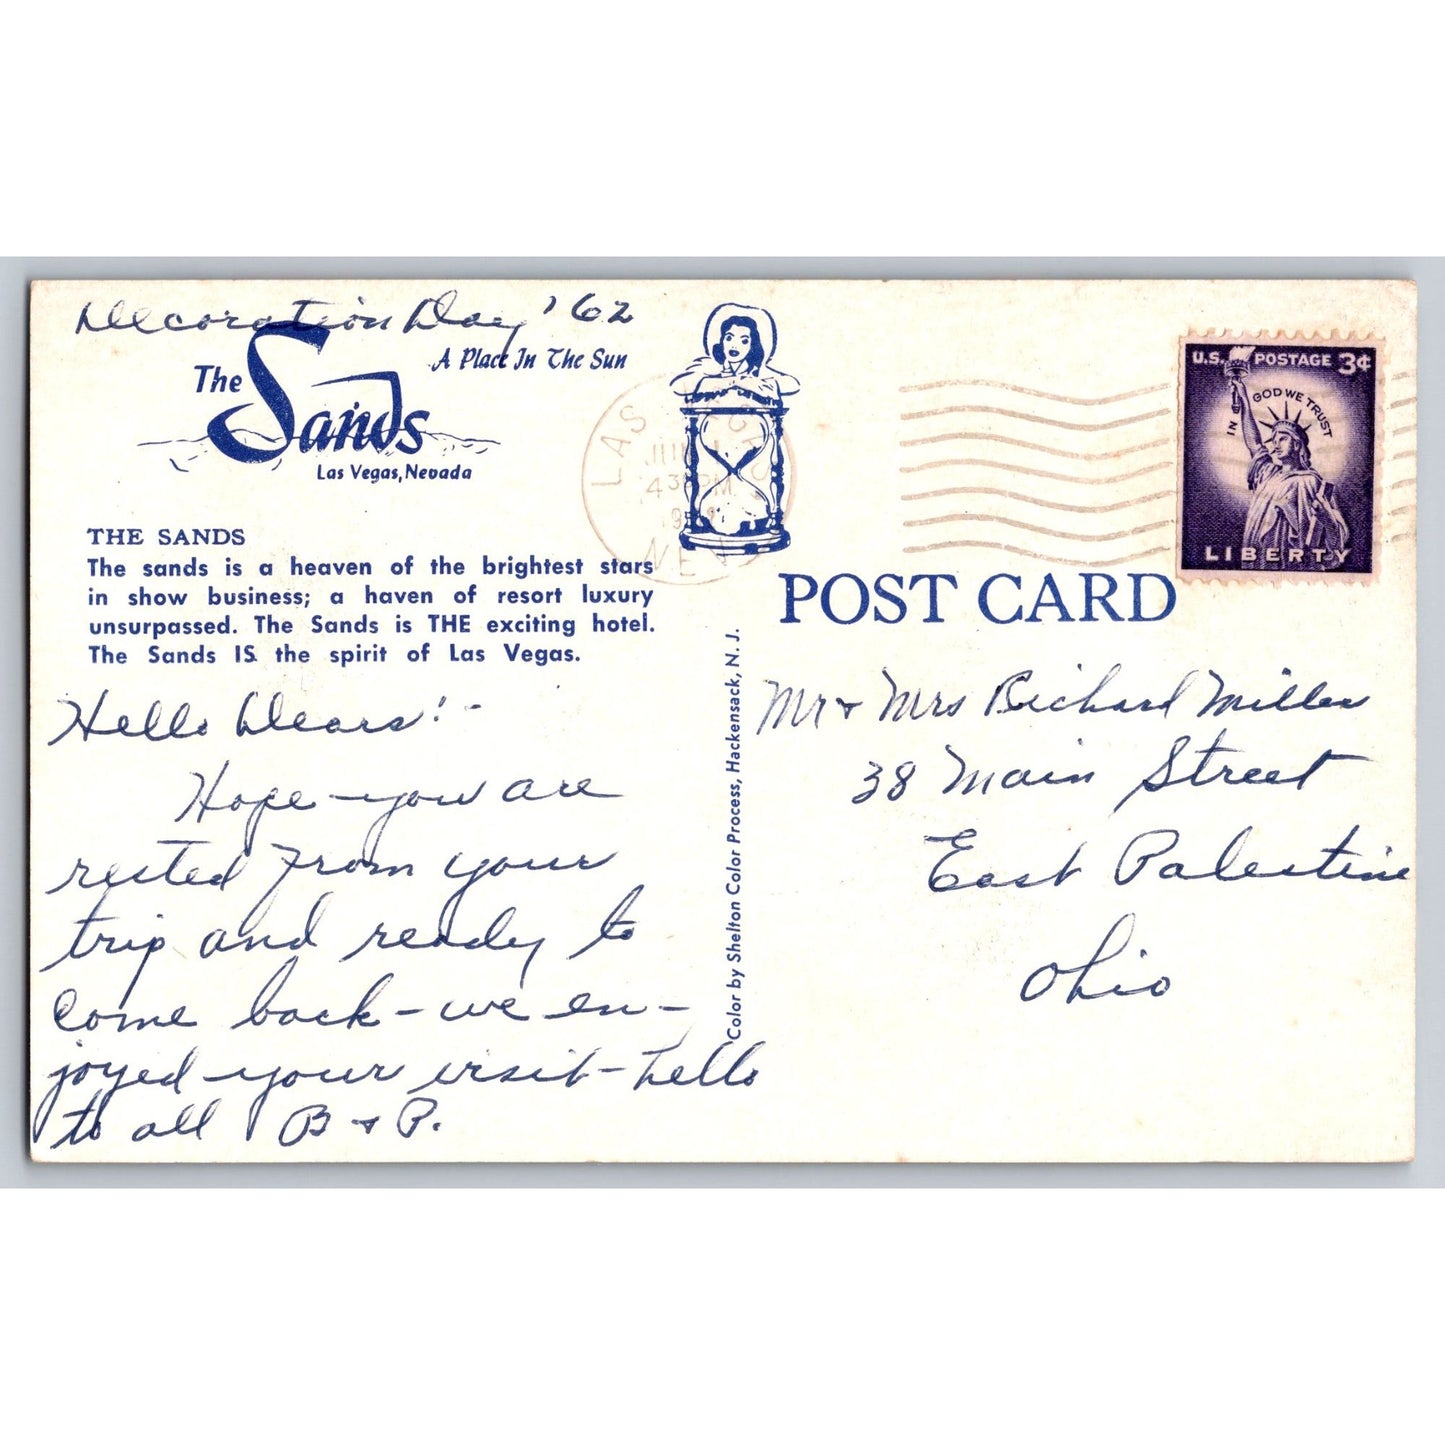 Decoration Day '62
The Sands
A Place In The Sun
Las Vegas, Nevada
THE SANDS
The sands is a heaven of the brightest stars
in show business; a haven of resort luxury
unsurpassed. The Sands is THE exciting hotel.
The Sands IS the spirit of Las Vegas.
Hello Dears! -
Hope you are
rested from your
trip and ready to
come back - we en-
joyed your visit - hello
to all B & P.
Color by Shelton Color Process, Hackensack, N. J.
LAS VEGAS
JUN 1
430 PM
NEV
U.S. POSTAGE 3¢
IN GOD WE TRUST
LIBERTY
POST CARD
Mr & Mrs Richard Miller
38 Main Street
East Palestine
Ohio